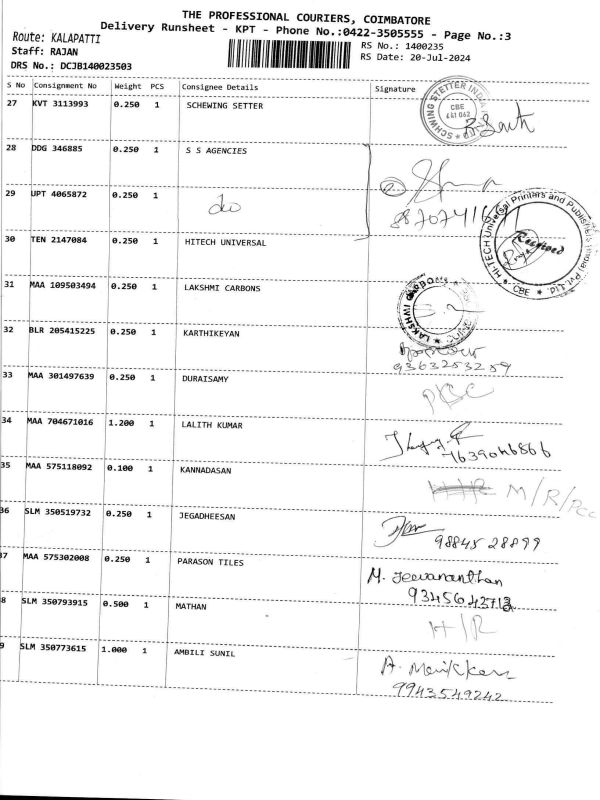 THE PROFESSIONAL COURIERS, COIMBATORE
Delivery Runsheet - KPT - Phone No.:0422-3505555 - Page No.:3
Route: KALAPATTI
Staff: RAJAN
DRS No.: DCJB140023503
RS No.: 1400235
RS Date: 20-Jul-2024
S No Consignment No Weight PCS Consignee Details Signature
27 KVT 3113993 0.250 1 SCHEWING SETTER
SCHWING STETTER INDIA
CBE
641 062
28 DDG 346885 0.250 1 S S AGENCIES
29 UPT 4065872 0.250 1 do
30 TEN 2147084 0.250 1 HITECH UNIVERSAL
HITECH Universal Printers and Publishers (India) Pvt. Ltd.
* CBE *
Received
31 MAA 109503494 0.250 1 LAKSHMI CARBONS
LAKSHMI CARBONS
32 BLR 205415225 0.250 1 KARTHIKEYAN
9363253259
33 MAA 301497639 0.250 1 DURAISAMY
34 MAA 704671016 1.200 1 LALITH KUMAR
7639046866
35 MAA 575118092 0.100 1 KANNADASAN
M/R/PCC
36 SLM 350519732 0.250 1 JEGADHEESAN
98845 28899
37 MAA 575302008 0.250 1 PARASON TILES
M. Jeevananthan
9345643713
8 SLM 350793915 0.500 1 MATHAN
H/R
9 SLM 350773615 1.000 1 AMBILI SUNIL
A. Manikkam
9943549242